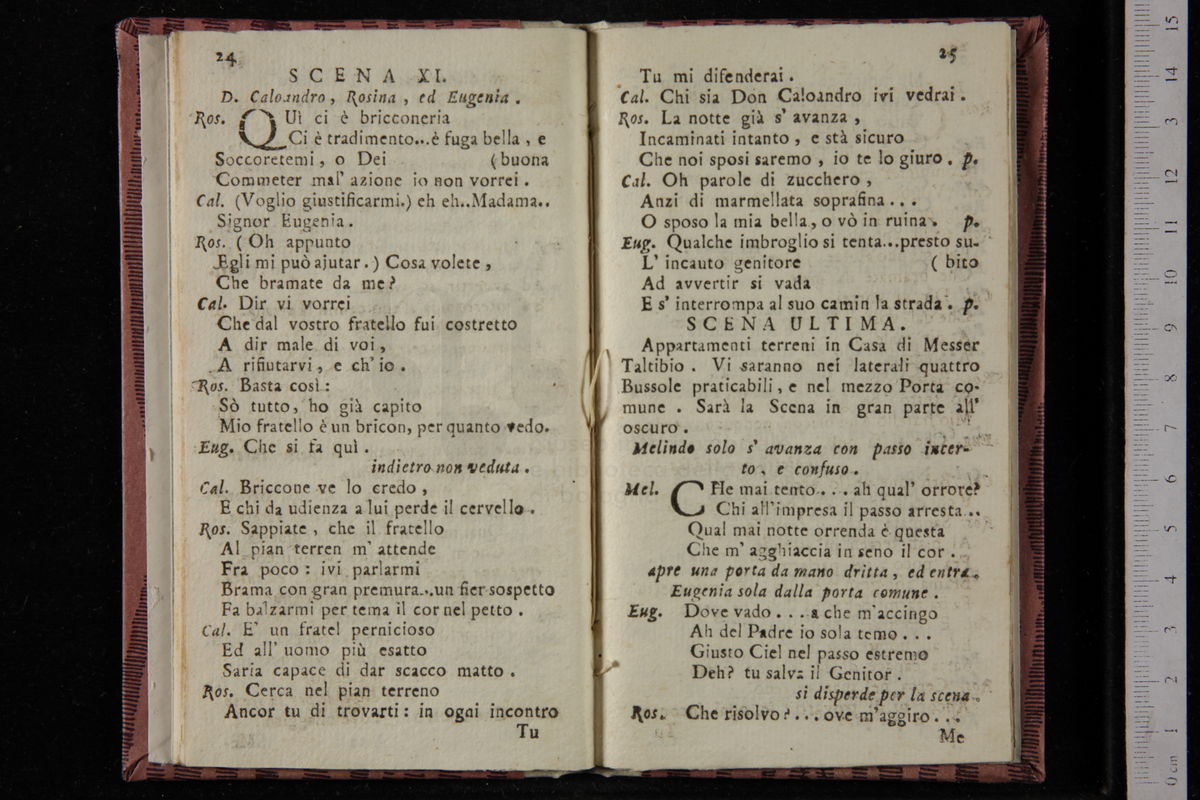 24
SCENA XI.
D. Caloandro, Rosina, ed Eugenia.
Ros. QUì ci è bricconeria
Ci è tradimento...è fuga bella, e
Soccoretemi, o Dei (buona
Commeter mal' azione io non vorrei.
Cal. (Voglio giustificarmi.) eh eh..Madama..
Signor Eugenia.
Ros. (Oh appunto
Egli mi può ajutar.) Cosa volete,
Che bramate da me?
Cal. Dir vi vorrei
Che dal vostro fratello fui costretto
A dir male di voi,
A rifiutarvi, e ch' io.
Ros. Basta così:
Sò tutto, ho già capito
Mio fratello è un bricon, per quanto vedo.
Eug. Che si fa quì.
indietro non veduta.
Cal. Briccone ve lo credo,
E chi da udienza a lui perde il cervello.
Ros. Sappiate, che il fratello
Al pian terren m' attende
Fra poco: ivi parlarmi
Brama con gran premura...un fier sospetto
Fa balzarmi per tema il cor nel petto.
Cal. E' un fratel pernicioso
Ed all' uomo più esatto
Saria capace di dar scacco matto.
Ros. Cerca nel pian terreno
Ancor tu di trovarti: in ogni incontro
Tu
25
Tu mi difenderai.
Cal. Chi sia Don Caloandro ivi vedrai.
Ros. La notte già s' avanza,
Incaminati intanto, e stà sicuro
Che noi sposi saremo, io te lo giuro. p.
Cal. Oh parole di zucchero,
Anzi di marmellata soprafina...
O sposo la mia bella, o vò in ruina. p.
Eug. Qualche imbroglio si tenta...presto su-
L' incauto genitore (bito
Ad avvertir si vada
E s' interrompa al suo camin la strada. p.
SCENA ULTIMA.
Appartamenti terreni in Casa di Messer
Taltibio. Vi saranno nei laterali quattro
Bussole praticabili, e nel mezzo Porta co-
mune. Sarà la Scena in gran parte all'
oscuro.
Melindo solo s' avanza con passo incer-
to, e confuso.
Mel. CHe mai tento... ah qual' orrore?
Chi all'impresa il passo arresta..
Qual mai notte orrenda è questa
Che m' agghiaccia in seno il cor.
apre una porta da mano dritta, ed entra.
Eugenia sola dalla porta comune.
Eug. Dove vado... a che m'accingo
Ah del Padre io sola temo...
Giusto Ciel nel passo estremo
Deh? tu salva il Genitor.
si disperde per la scena.
Ros. Che risolvo?... ove m'aggiro...
Me
15
14
13
12
11
10
9
8
7
6
5
4
3
2
1
0 cm